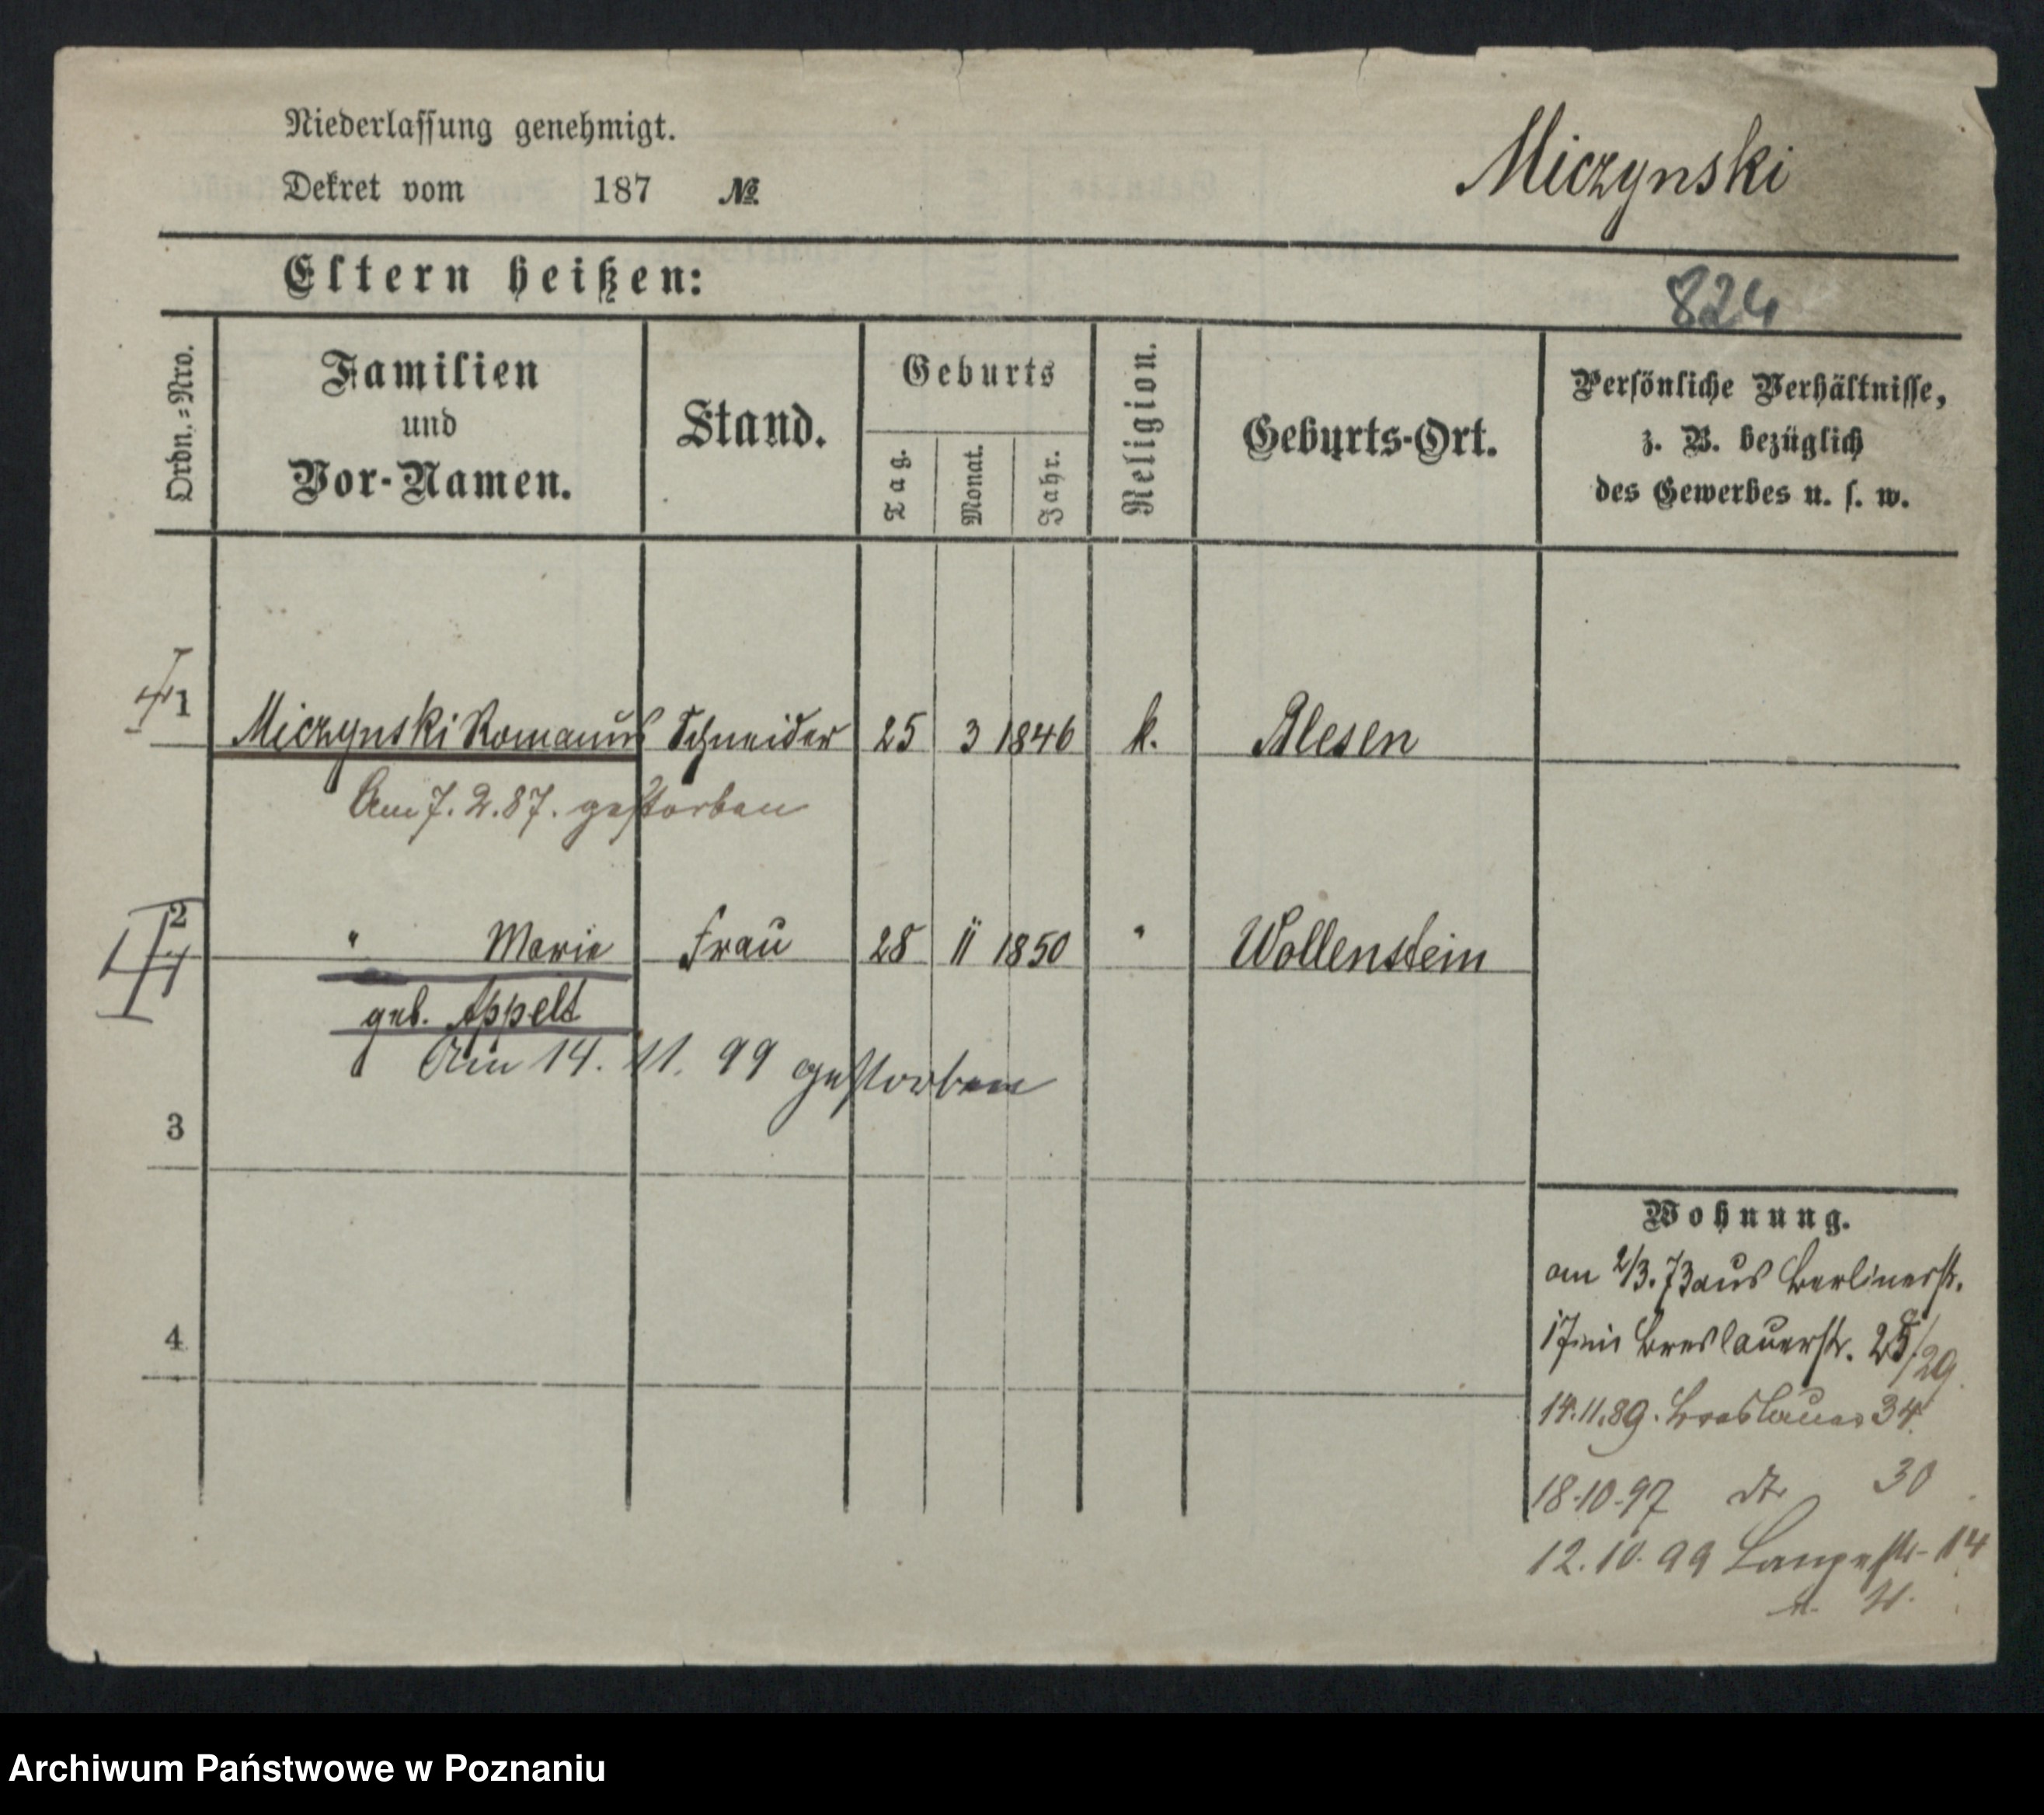 Niederlassung genehmigt.
Dekret vom 187 №
Miczynski
Eltern heißen:
824
Ordn.=Nro.
Familien
und
Vor-Namen.
Stand.
Geburts
Tag.
Monat.
Jahr.
Religion.
Geburts-Ort.
Persönliche Verhältnisse,
z. B. bezüglich
des Gewerbes u. s. w.
1 Miczynski Romanus Schneider 25 3 1846 k.
Am 7. 2. 87. gestorben
2 " Marie Frau 28 11 1850 " Wollenstein
geb. Appelt
Am 14. 11. 99 gestorben
3
4
Wohnung.
am 2/3. 73 aus Berlinerstr.
17 in Breslauerstr. 25/29.
14.11.89. Breslauer 34.
18.10.97 dto 30
12.10.99 Langestr. 14
Archiwum Państwowe w Poznaniu